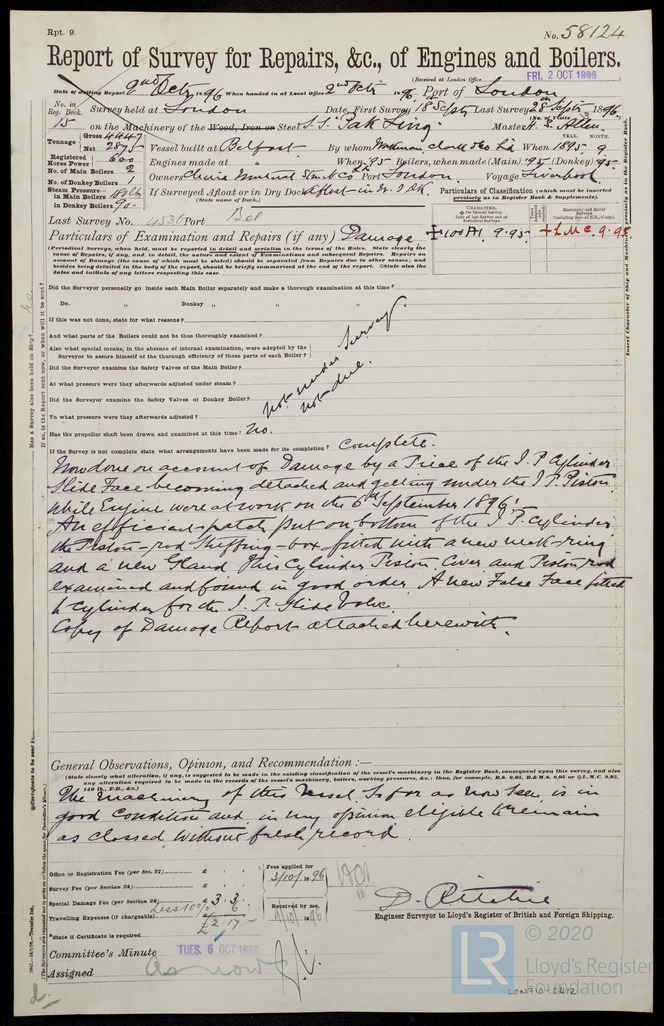 Rpt. 9.
No. 58124
Report of Survey for Repairs, &c., of Engines and Boilers.
(Received at London Office FRI. 2 OCT 1896
Date of writing Report 2nd Octr 1896 When handed in at Local Office 2nd Octr 1896 Port of London
No. in Reg. Book. 15 Survey held at London Date, First Survey 18 Septr Last Survey 28 Septr 1896
on the Machinery of the Wood, Iron or Steel S.S. "Pak Ling" Master H. S. Allen
Tonnage Gross 4447 Net 2875
Vessel built at Belfast By whom Workman Clark & Co Ld When 1895 . 9
Registered Horse Power 600
Engines made at " When '95 Boilers, when made (Main) '95 (Donkey) 95
No. of Main Boilers 2
No. of Donkey Boilers 1
Owners China Mutual Port London Voyage Liverpool
Steam Pressure in Main Boilers
in Donkey Boilers 90
If Surveyed Afloat or in Dry Dock Afloat in
(State name of Dock.)
Particulars of Classification (which must be inserted precisely as in Register Book & Supplements).
Last Survey No. 4536 Port Bel
✠100A1 9.95
✠LMC. 9.95
Particulars of Examination and Repairs (if any) Damage
(Periodical Surveys, when held, must be reported in detail and seriatim in the terms of the Rules. State clearly the cause of Repairs, if any, and, in detail, the nature and extent of Examinations and subsequent Repairs. Repairs on account of Damage (the cause of which must be stated) should be separated from Repairs due to other causes; and besides being detailed in the body of the report, should be briefly summarised at the end of the report. State also the dates and initials of any letters respecting this case.)
Did the Surveyor personally go inside each Main Boiler separately and make a thorough examination at this time?
Do. " Donkey " " "
If this was not done, state for what reasons?
And what parts of the Boilers could not be thus thoroughly examined?
Also what special means, in the absence of internal examination, were adopted by the Surveyor to assure himself of the thorough efficiency of those parts of each Boiler?
Did the Surveyor examine the Safety Valves of the Main Boiler?
At what pressure were they afterwards adjusted under steam?
Did the Surveyor examine the Safety Valves of Donkey Boiler?
To what pressure were they afterwards adjusted?
not under Survey.
not due.
Has the propeller shaft been drawn and examined at this time? No.
If the Survey is not complete state what arrangements have been made for its completion? Complete.
Now done on account of Damage by a Piece of the I.P. Cylinder
Slide Face becoming detached and getting under the I.P. Piston
while Engines were at work on the 6th September 1896:
An efficient patch put on bottom of the I.P. Cylinder
the Piston-rod Stuffing-box fitted with a new neck-ring
and a new Gland This Cylinder Piston, Cover and Piston rod
examined and found in good order. A new False Face fitted
to Cylinder for the I.P. Slide Valve.
Copy of Damage Report attached herewith.
General Observations, Opinion, and Recommendation :—
(State clearly what alteration, if any, is suggested to be made in the existing classification of the vessel's machinery in the Register Book, consequent upon this survey, and also any alteration required to be made in the records of the vessel's machinery, boilers, working pressures, &c.; thus, for example, B.S. 9,95, B.&M.S. 9,95 or ✠L.M.C. 9,95, 140 lb., F.D., &c.)
The Machinery of this Vessel So far as now seen, is in
good Condition and, in my opinion eligible to remain
as classed, without fresh record.
Office or Registration Fee (per Sec. 27) £
Survey Fee (per Section 28) £
Special Damage Fee (per Section 28) £ 3 . 3
Less 10% 6
Travelling Expenses (if chargeable) £ 2 . 17
Fees applied for 3/10/1896
Received by me, 9/10/1896
D. Ritchie
Engineer Surveyor to Lloyd's Register of British and Foreign Shipping.
State if Certificate is required
Committee's Minute TUES. 6 OCT 1896
Assigned as now
LR © 2020
Lloyd's Register Foundation